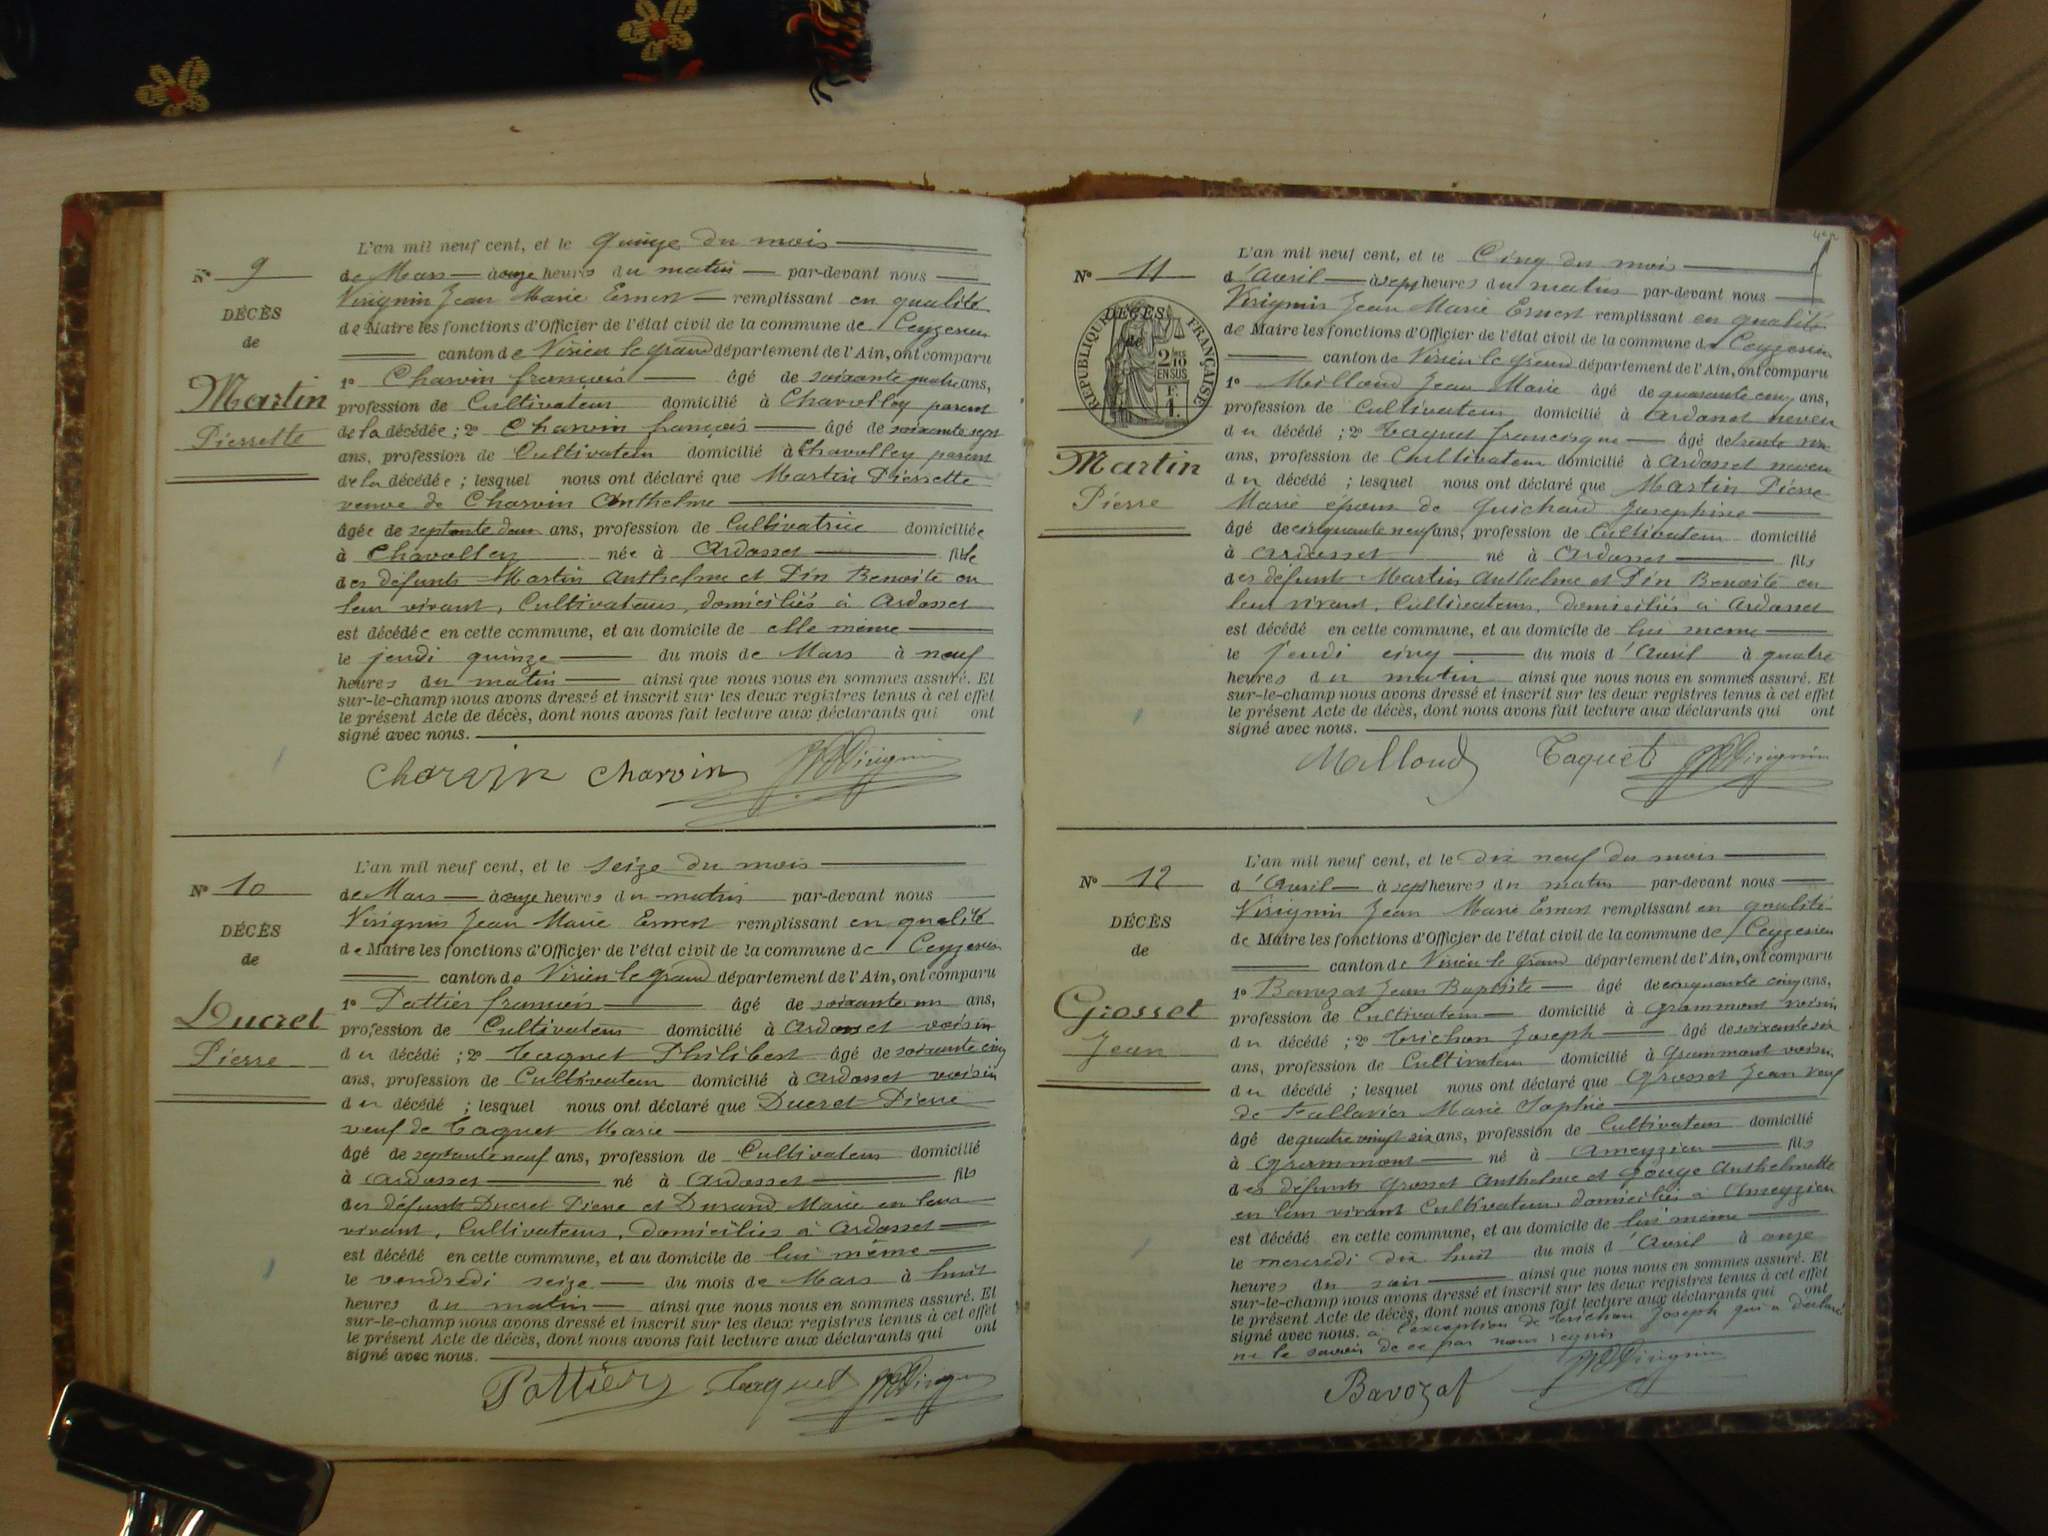 L'an mil neuf cent, et le quinze du mois
N° 9
de Mars à onze heures du matin par-devant nous
Virignin Jean Marie Ernest remplissant en qualité
DÉCÈS
de Maire les fonctions d'Officier de l'état civil de la commune de Ceyzerieu
de
canton de Virieu le grand département de l'Ain, ont comparu
Martin
Pierrette
1° Charvin françois âgé de soixante quatre ans,
profession de Cultivateur domicilié à Chavolley parent
de la décédée ; 2° Charvin françois âgé de soixante sept
ans, profession de Cultivateur domicilié à Chavolley parent
de la décédée ; lesquel nous ont déclaré que Martin Pierrette
veuve de Charvin Anthelme
âgée de septante deux ans, profession de Cultivatrice domiciliée
à Chavolley née à Ardosset fille
des défunts Martin Anthelme et Pin Benoite en
leur vivant, Cultivateurs, domiciliés à Ardosset
est décédée en cette commune, et au domicile de elle même
le jeudi quinze du mois de Mars à neuf
heures du matin ainsi que nous nous en sommes assuré. Et
sur-le-champ nous avons dressé et inscrit sur les deux registres tenus à cet effet
le présent Acte de décès, dont nous avons fait lecture aux déclarants qui ont
signé avec nous.
Charvin Charvin Virignin
L'an mil neuf cent, et le seize du mois
N° 10
de Mars à onze heures du matin par-devant nous
Virignin Jean Marie Ernest remplissant en qualité
DÉCÈS
de Maire les fonctions d'Officier de l'état civil de la commune de Ceyzerieu
de
canton de Virieu le grand département de l'Ain, ont comparu
Ducret
Pierre
1° Pottier françois âgé de soixante un ans,
profession de Cultivateur domicilié à Ardosset voisin
du décédé ; 2° Taquet Philibert âgé de soixante cinq
ans, profession de Cultivateur domicilié à Ardosset voisin
du décédé ; lesquel nous ont déclaré que Ducret Pierre
veuf de Taquet Marie
âgé de septante neuf ans, profession de Cultivateur domicilié
à Ardosset né à Ardosset fils
des défunts Ducret Pierre et Durand Marie en leur
vivant, Cultivateurs, domiciliés à Ardosset
est décédé en cette commune, et au domicile de lui même
le vendredi seize du mois de Mars à huit
heures du matin ainsi que nous nous en sommes assuré. Et
sur-le-champ nous avons dressé et inscrit sur les deux registres tenus à cet effet
le présent Acte de décès, dont nous avons fait lecture aux déclarants qui ont
signé avec nous.
Pottier Taquet Virignin
L'an mil neuf cent, et le Cinq du mois
N° 11
d'Avril à sept heures du matin par-devant nous
Virignin Jean Marie Ernest remplissant en qualité
DÉCÈS
de
RÉPUBLIQUE FRANÇAISE
2/10 EN SUS
F. 1.
de Maire les fonctions d'Officier de l'état civil de la commune de Ceyzerieu
canton de Virieu le grand département de l'Ain, ont comparu
Martin
Pierre
1° Milloud Jean Marie âgé de quarante cinq ans,
profession de Cultivateur domicilié à Ardosset neveu
du décédé ; 2° Taquet francisque âgé de trente
ans, profession de Cultivateur domicilié à Ardosset neveu
du décédé ; lesquel nous ont déclaré que Martin Pierre
Marie époux de Guichard Josephine
âgé de cinquante neuf ans, profession de Cultivateur domicilié
à Ardosset né à Ardosset fils
des défunts Martin Anthelme et Pin Benoite en
leur vivant, Cultivateurs, domiciliés à Ardosset
est décédé en cette commune, et au domicile de lui même
le jeudi cinq du mois d'Avril à quatre
heures du matin ainsi que nous nous en sommes assuré. Et
sur-le-champ nous avons dressé et inscrit sur les deux registres tenus à cet effet
le présent Acte de décès, dont nous avons fait lecture aux déclarants qui ont
signé avec nous.
Milloud Taquet Virignin
L'an mil neuf cent, et le dix neuf du mois
N° 12
d'Avril à sept heures du matin par-devant nous
Virignin Jean Marie Ernest remplissant en qualité
DÉCÈS
de Maire les fonctions d'Officier de l'état civil de la commune de Ceyzerieu
de
canton de Virieu le grand département de l'Ain, ont comparu
Grosset
Jean
1° Bavozat Jean Baptiste âgé de cinquante cinq ans,
profession de Cultivateur domicilié à Grammont voisin
du décédé ; 2° Trichon Joseph âgé de soixante six
ans, profession de Cultivateur domicilié à Grammont voisin
du décédé ; lesquel nous ont déclaré que Grosset Jean veuf
de Fallavier Marie Sophie
âgé de quatre vingt six ans, profession de Cultivateur domicilié
à Grammont né à Ameyzieu fils
des défunts Grosset Anthelme et Gouge Anthelmette
en leur vivant Cultivateurs, domiciliés à Ameyzieu
est décédé en cette commune, et au domicile de lui même
le mercredi dix huit du mois d'Avril à onze
heures du soir ainsi que nous nous en sommes assuré. Et
sur-le-champ nous avons dressé et inscrit sur les deux registres tenus à cet effet
le présent Acte de décès, dont nous avons fait lecture aux déclarants qui ont
signé avec nous. à l'exception de Trichon Joseph qui a déclaré
ne le savoir de ce par nous requis
Bavozat Virignin